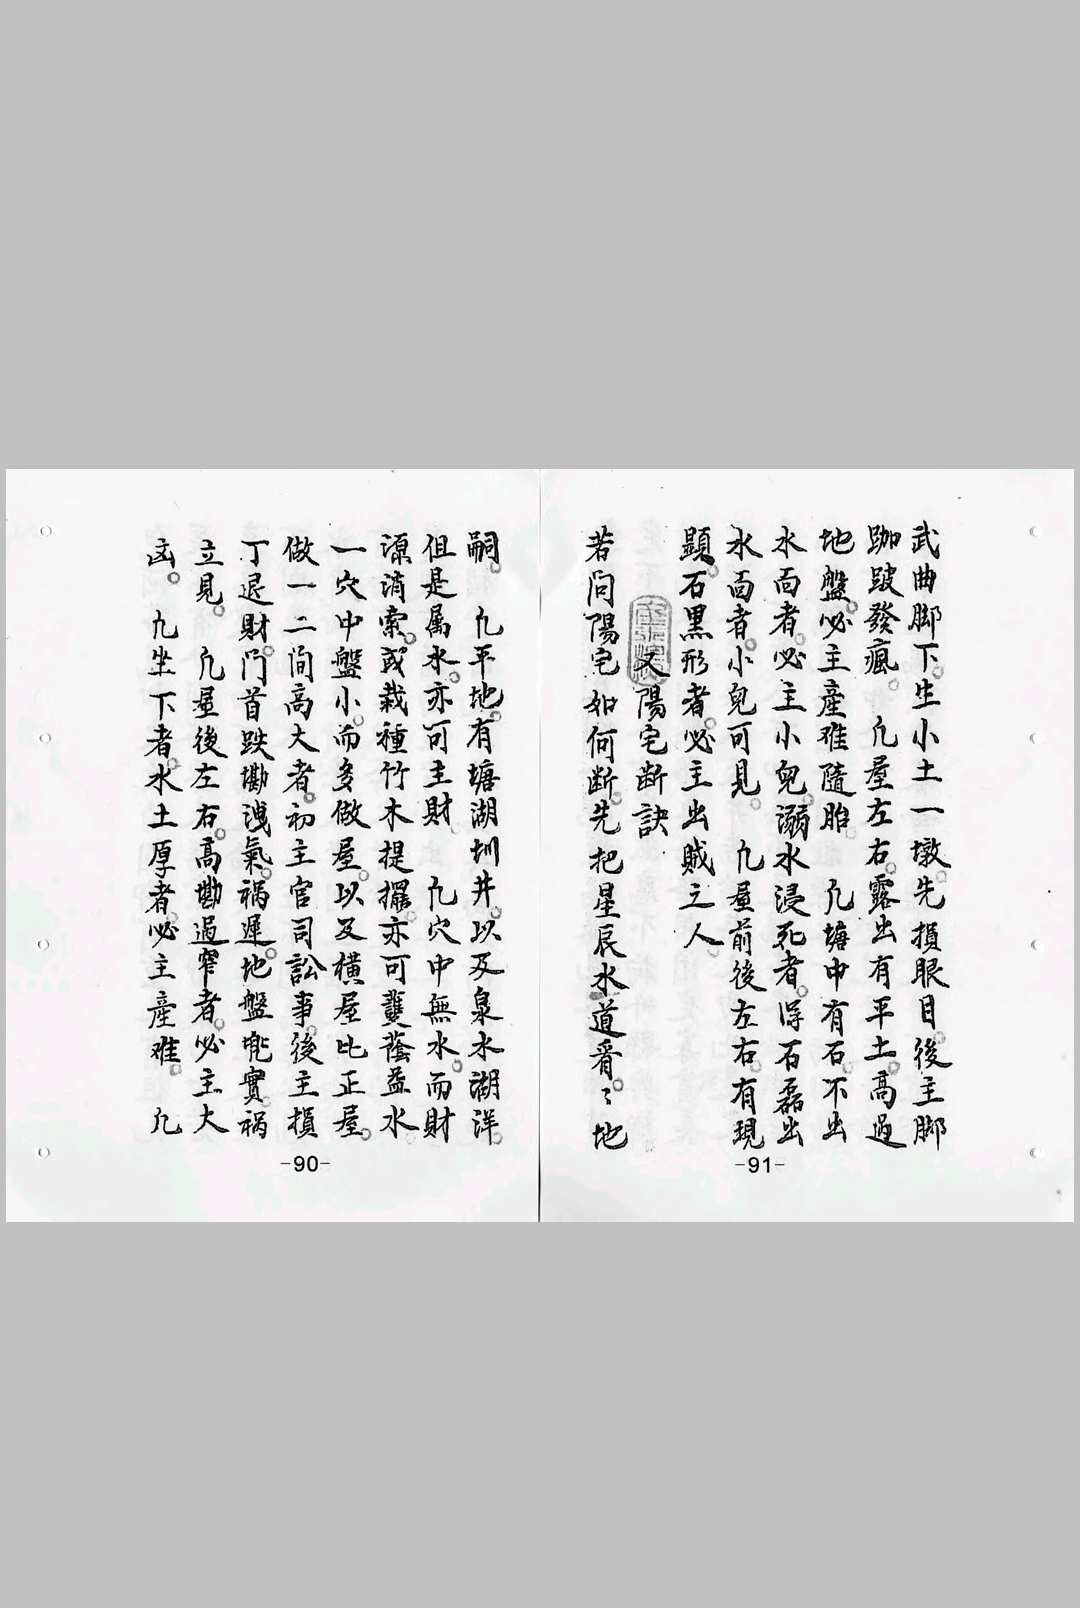 嗣。凡平地。有塘湖圳井。以及泉水湖洋。
但是属水。亦可主財。凡穴中無水。而財
源消索。或栽種竹木提攞。亦可蕟蔭益水
一穴中盤小。而多做屋。以及橫屋比正屋。
做一二间高大者。初主官司訟事。後主損
丁退財。门首跌墈洩氣。禍遲。地盤實禍
立見。凡屋後左右。高墈逼窄者。必主大
凶。凡坐下者。水土厚者。必主產难。凡
-90-
武曲脚下。生小土一墩。先損眼目。後主脚
跏跛發瘋。凡屋左右。露出有平土。高過
地盤。必主產难隨胎。凡塘中有石。不出
水面者。必主小兒。溺水浸死者。浮石磊出
水面者。小兒可見。凡屋前後左右。有現
顕石黑形者。必主出賊之人。
又陽宅断訣
若问陽宅如何断。先把星辰水道看。〻地
-91-